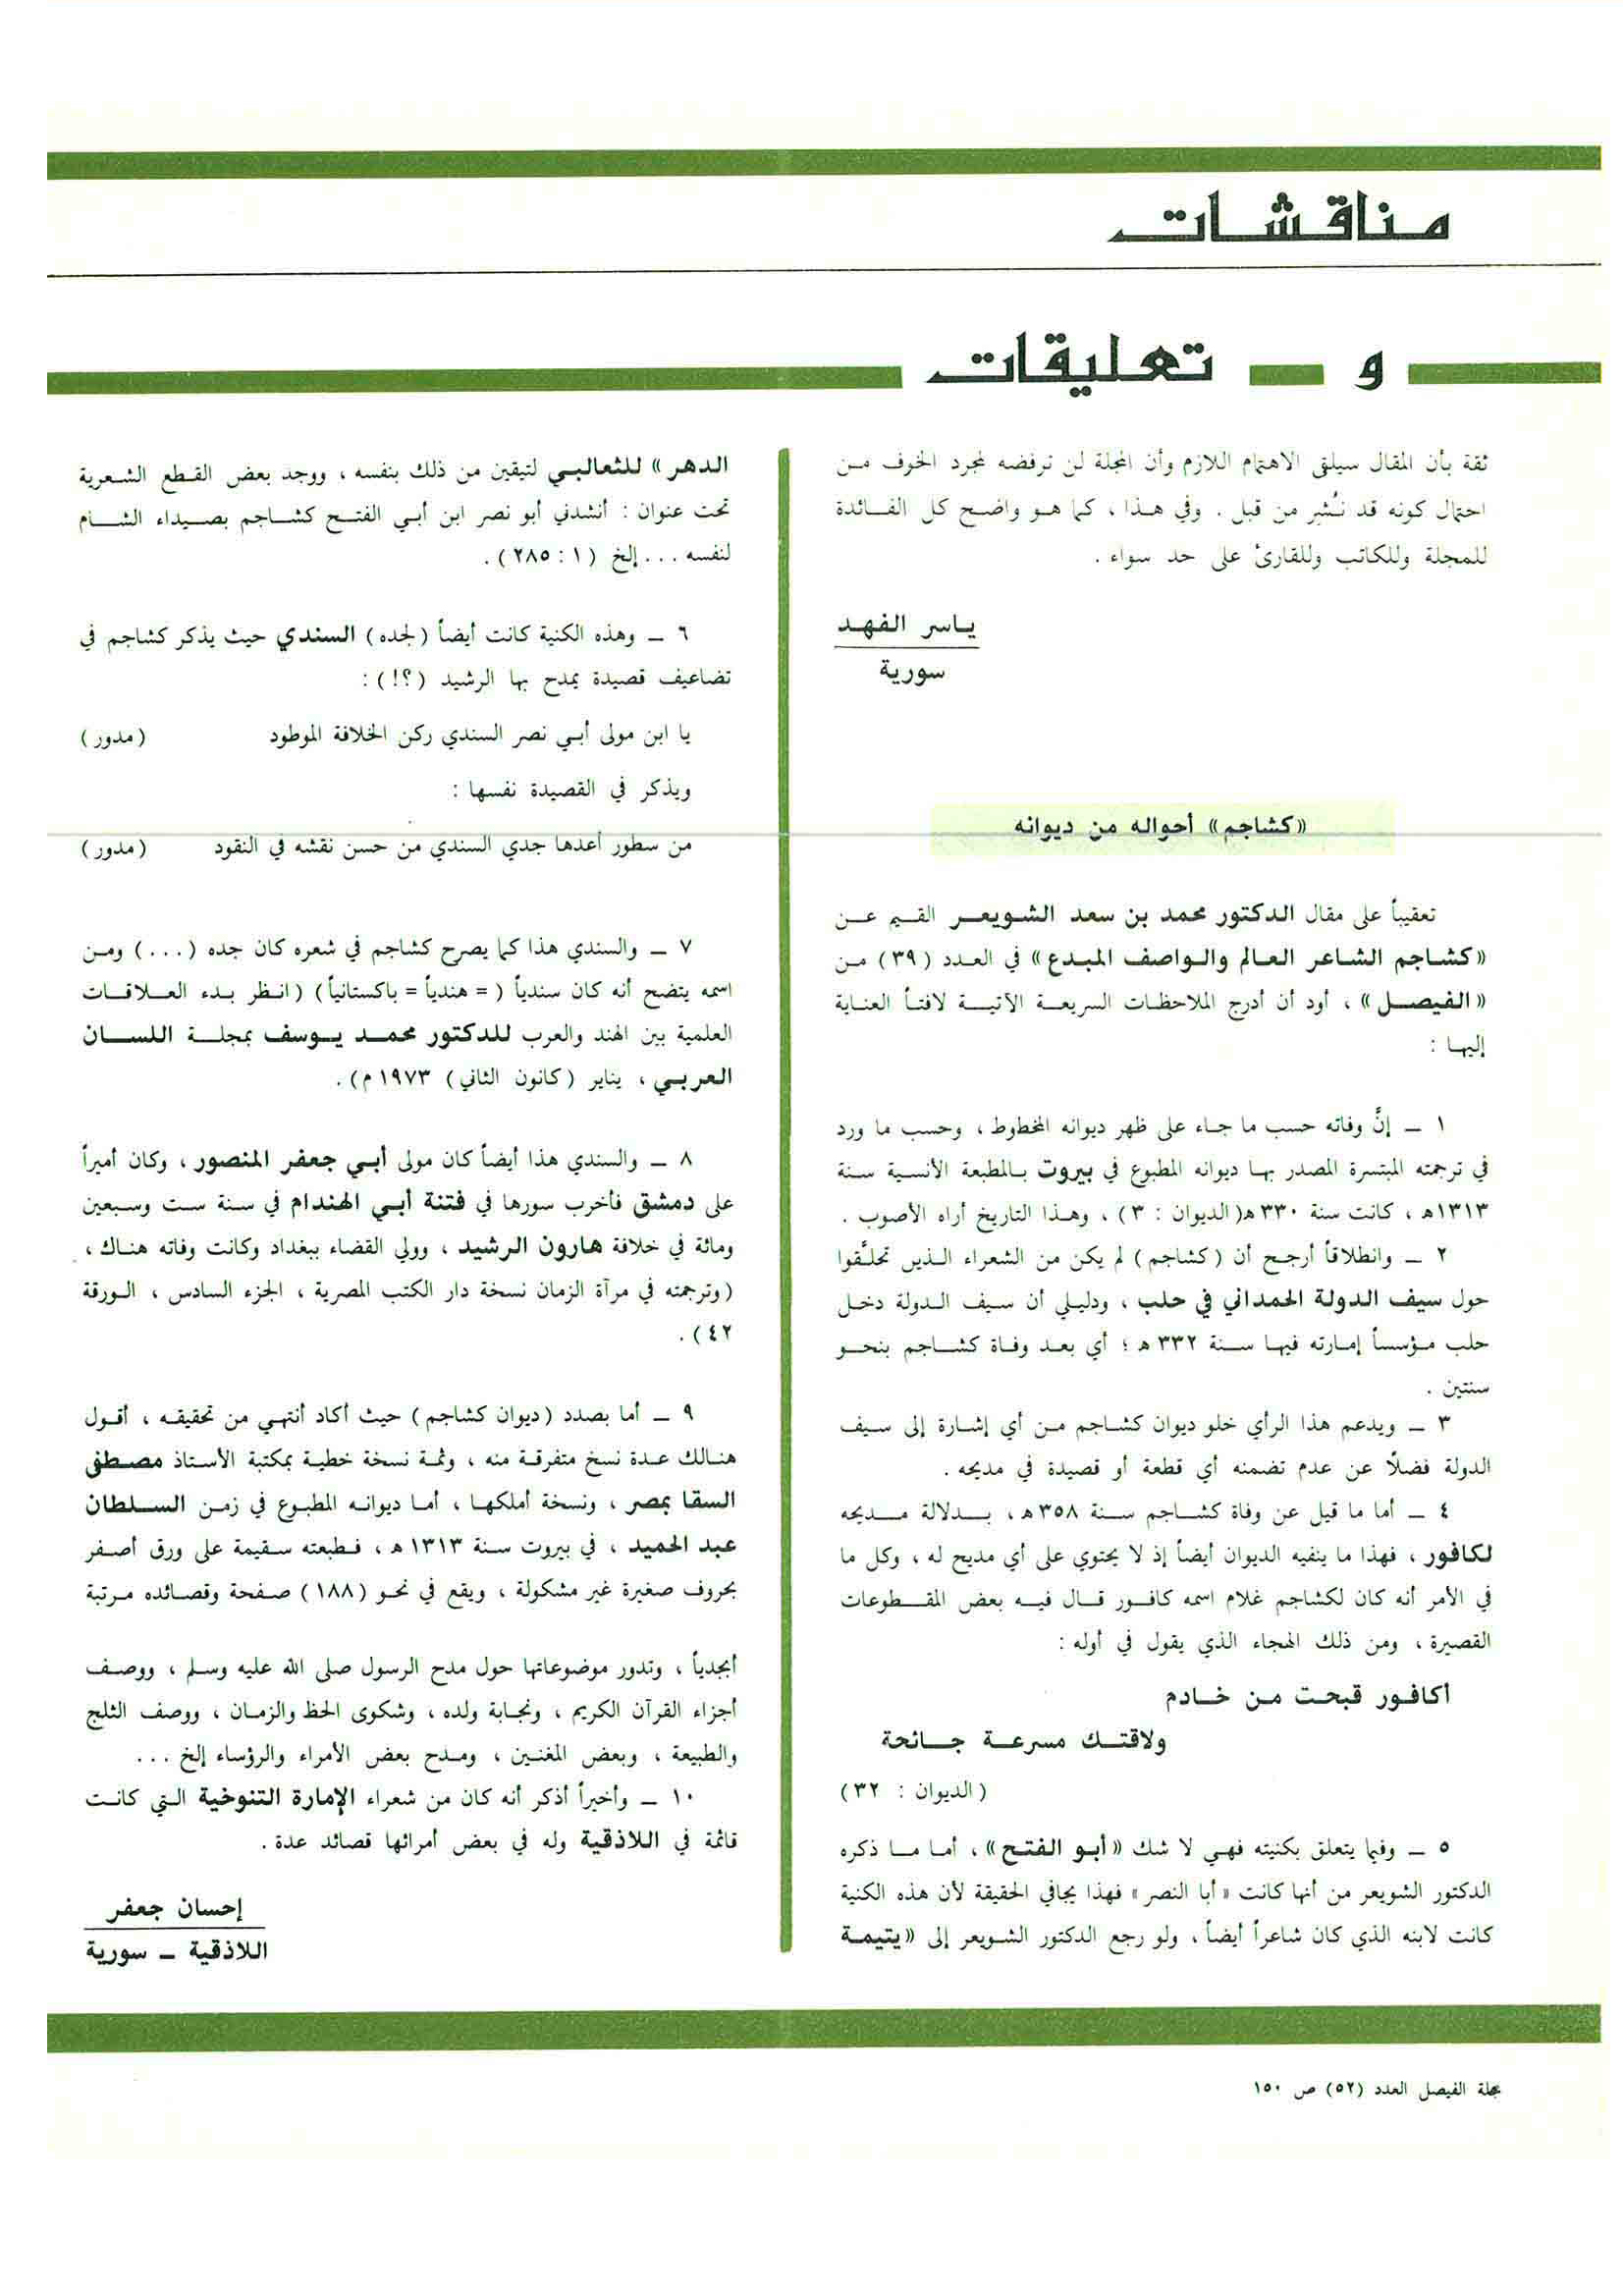 مناقشات
و - تعليقات
ثقة بأن المقال سيلقى الاهتمام اللازم وأن المجلة لن ترفضه لمجرد الخوف من
احتمال كونه قد نُشر من قبل . وفي هذا ، كما هو واضح كل الفائدة
للمجلة وللكاتب وللقارئ على حد سواء .
ياسر الفهد
سورية
«كشاجم» أحواله من ديوانه
تعقيباً على مقال الدكتور محمد بن سعد الشويعر القيم عن
«كشاجم الشاعر العالم والواصف المبدع» في العدد (٣٩) من
«الفيصل» ، أود أن أدرج الملاحظات السريعة الآتية لافتاً العناية
إليها :
١ ــ إنَّ وفاته حسب ما جاء على ظهر ديوانه المخطوط ، وحسب ما ورد
في ترجمته المبتسرة المصدر بها ديوانه المطبوع في بيروت بالمطبعة الأنسية سنة
١٣١٣هـ ، كانت سنة ٣٣٠هـ(الديوان : ٣) ، وهذا التاريخ أراه الأصوب .
٢ ــ وانطلاقاً أرجح أن (كشاجم) لم يكن من الشعراء الذين تحلَّقوا
حول سيف الدولة الحمداني في حلب ، ودليلي أن سيف الدولة دخل
حلب مؤسساً إمارته فيها سنة ٣٣٢ هـ ؛ أي بعد وفاة كشاجم بنحو
سنتين .
٣ ــ ويدعم هذا الرأي خلو ديوان كشاجم من أي إشارة إلى سيف
الدولة فضلًا عن عدم تضمنه أي قطعة أو قصيدة في مديحه .
٤ ــ أما ما قيل عن وفاة كشاجم سنة ٣٥٨هـ ، بدلالة مديحه
لكافور ، فهذا ما ينفيه الديوان أيضاً إذ لا يحتوي على أي مديح له ، وكل ما
في الأمر أنه كان لكشاجم غلام اسمه كافور قال فيه بعض المقطوعات
القصيرة ، ومن ذلك الهجاء الذي يقول في أوله :
أكافور قبحت من خادم
ولاقتك مسرعة جائحة
(الديوان : ٣٢)
٥ ــ وفيما يتعلق بكنيته فهي لا شك «أبو الفتح» ، أما ما ذكره
الدكتور الشويعر من أنها كانت «أبا النصر» فهذا يجافي الحقيقة لأن هذه الكنية
كانت لابنه الذي كان شاعراً أيضاً ، ولو رجع الدكتور الشويعر إلى «يتيمة
الدهر» للثعالبي لتيقين من ذلك بنفسه ، ووجد بعض القطع الشعرية
تحت عنوان : أنشدني أبو نصر ابن أبي الفتح كشاجم بصيداء الشام
لنفسه ... إلخ (١ : ٢٨٥) .
٦ ــ وهذه الكنية كانت أيضاً (لجده) السندي حيث يذكر كشاجم في
تضاعيف قصيدة يمدح بها الرشيد (؟!) :
يا ابن مولى أبي نصر السندي ركن الخلافة الموطود (مدور)
ويذكر في القصيدة نفسها :
من سطور أعدها جدي السندي من حسن نقشه في النقود (مدور)
٧ ــ والسندي هذا كما يصرح كشاجم في شعره كان جده (...) ومن
اسمه يتضح أنه كان سندياً ( = هندياً = باكستانياً) (انظر بدء العلاقات
العلمية بين الهند والعرب للدكتور محمد يوسف بمجلة اللسان
العربي ، يناير (كانون الثاني) ١٩٧٣م) .
٨ ــ والسندي هذا أيضاً كان مولى أبي جعفر المنصور ، وكان أميراً
على دمشق فأخرب سورها في فتنة أبي الهندام في سنة ست وسبعين
ومائة في خلافة هارون الرشيد ، وولي القضاء ببغداد وكانت وفاته هناك ،
(وترجمته في مرآة الزمان نسخة دار الكتب المصرية ، الجزء السادس ، الورقة
٤٢) .
٩ ــ أما بصدد (ديوان كشاجم) حيث أكاد أنتهي من تحقيقه ، أقول
هنالك عدة نسخ متفرقة منه ، وثمة نسخة خطية بمكتبة الأستاذ مصطفى
السقا بمصر ، ونسخة أملكها ، أما ديوانه المطبوع في زمن السلطان
عبد الحميد ، في بيروت سنة ١٣١٣ هـ ، فطبعته سقيمة على ورق أصفر
بحروف صغيرة غير مشكولة ، ويقع في نحو (١٨٨) صفحة وقصائده مرتبة
أبجدياً ، وتدور موضوعاتها حول مدح الرسول صلى الله عليه وسلم ، ووصف
أجزاء القرآن الكريم ، ونجابة ولده ، وشكوى الحظ والزمان ، ووصف الثلج
والطبيعة ، وبعض المغنين ، ومدح بعض الأمراء والرؤساء إلخ ...
١٠ ــ وأخيراً أذكر أنه كان من شعراء الإمارة التنوخية التي كانت
قائمة في اللاذقية وله في بعض أمرائها قصائد عدة .
إحسان جعفر
اللاذقية ــ سورية
مجلة الفيصل العدد (٥٢) ص ١٥٠